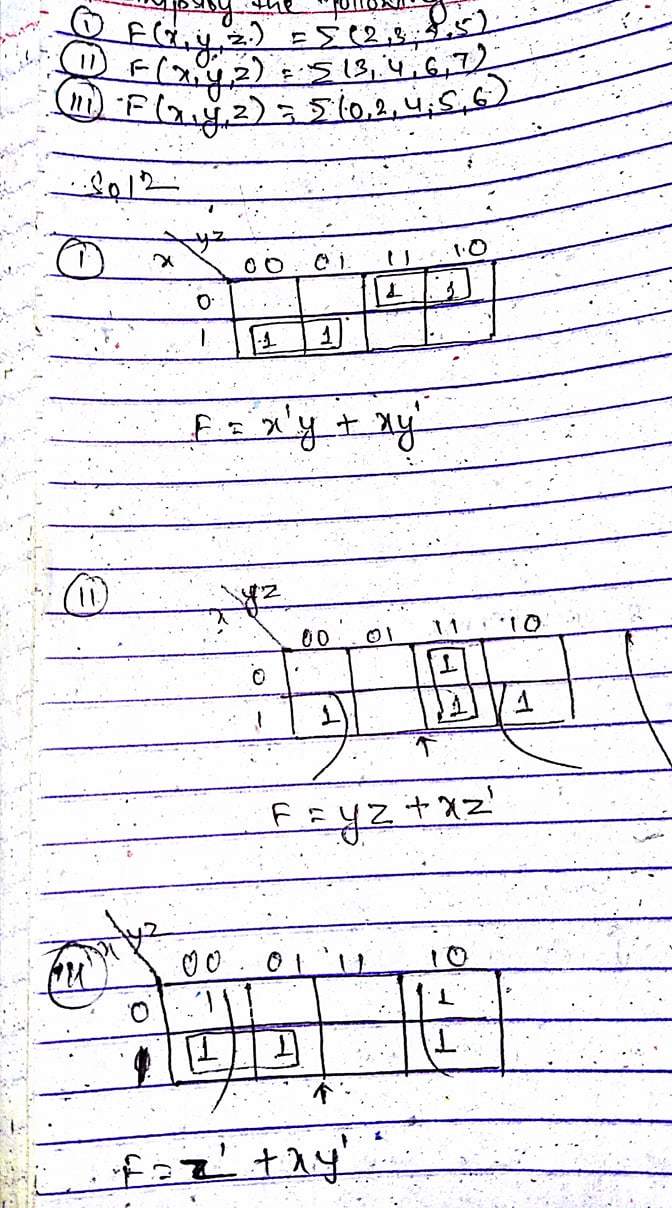 the following
(I) F(x,y,z) = Σ(2,3,4,5)
(II) F(x,y,z) = Σ(3,4,6,7)
(III) F(x,y,z) = Σ(0,2,4,5,6)
Solⁿ
(I) x yz 00 01 11 10
0 1 1
1 1 1
F = x'y + xy'
(II) x yz
00 01 11 10
0 1
1 1 1 1
↑
F = yz + xz'
(III) x yz 00 01 11 10
0 1 1
1 1 1 1
↑
F = z' + xy'